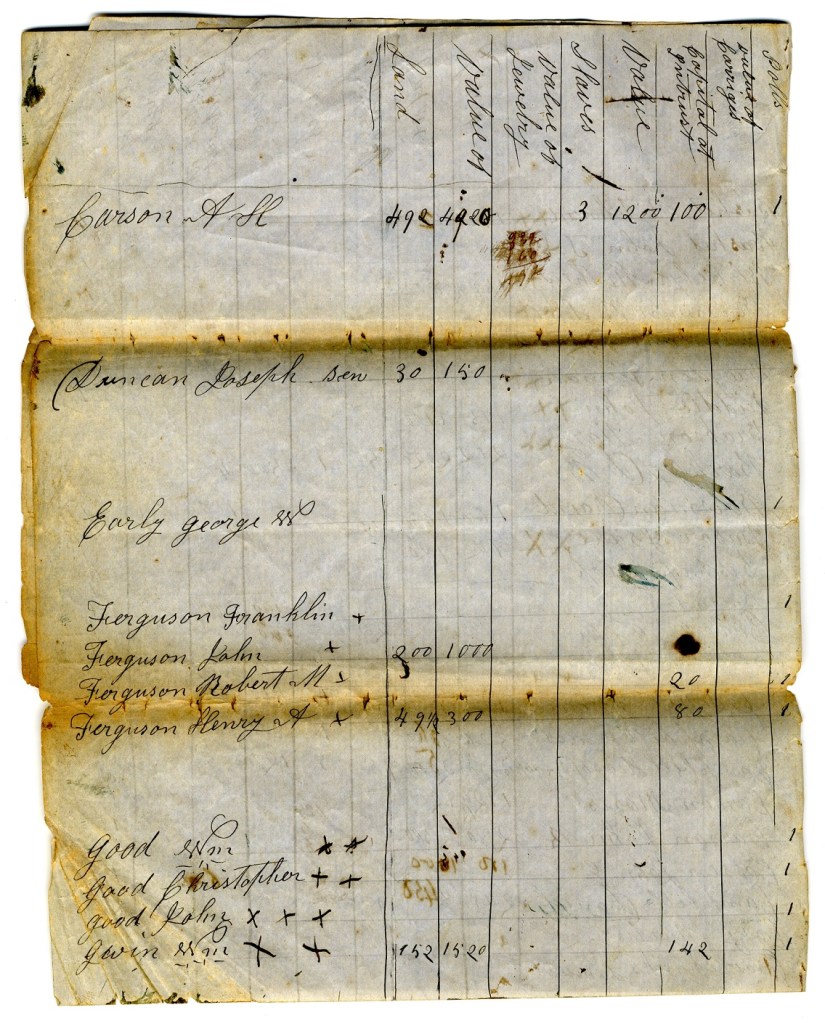 Land Value of Value of Jewelry Slaves Value Capital at Intrust Value of Carriges Polls
Carson A H 492 4920 3 1200 100 1
Duncan Joseph Sen 30 150
Early George W 1
Ferguson Franklin + 1
Ferguson John + 200 1000
Ferguson Robert M + 20 1
Ferguson Henry A + 49½ 300 80 1
Good Wm + + 1
Good Christopher + + 1
good John X X X 1
Gwin Wm X + 152 1520 142 1